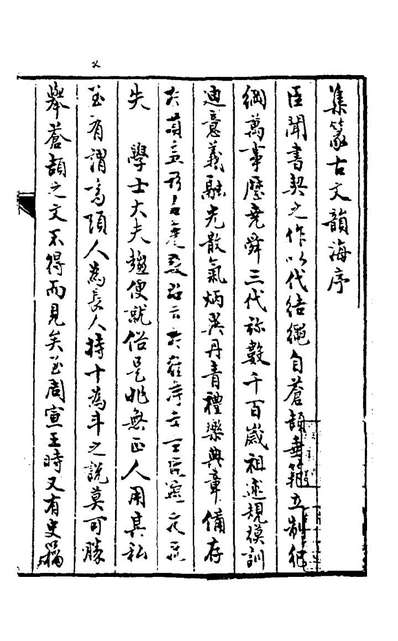 集篆古文韻海序
臣聞書契之作以代結繩自蒼頡垂範立制紀
綱萬事歷堯舜三代祢數千百歲祖述規模訓
迪意義融光散氣炳若丹青禮樂典章備存
於
失 學士大夫趨便就俗是非無正人用其私
至有謂馬頭人為長人持十為斗之說莫可勝
舉蒼頡之文不得而見矣至周宣王時又有史籀